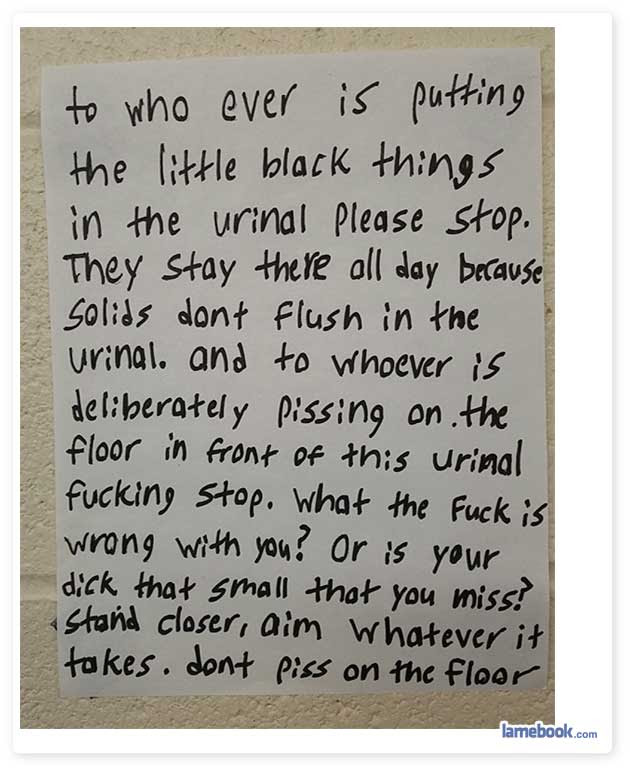 to who ever is putting
the little black things
in the urinal please stop.
They stay there all day because
solids dont flush in the
urinal. and to whoever is
deliberately pissing on.the
floor in front of this urinal
fucking stop. what the fuck is
wrong with you? Or is your
dick that small that you miss?
stand closer, aim whatever it
takes. dont piss on the floor
lamebook.com